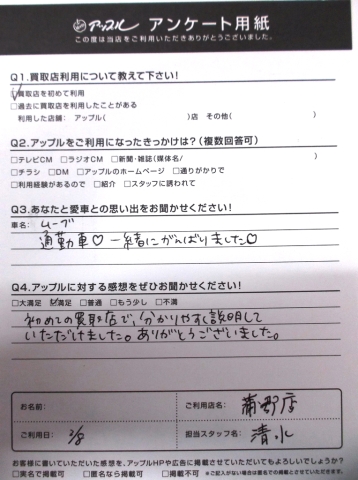 アップル アンケート用紙
この度は当店をご利用いただきありがとうございました。
Q1.買取店利用について教えて下さい!
☑買取店を初めて利用
□過去に買取店を利用したことがある
利用した店舗: アップル( )店 その他( )
Q2.アップルをご利用になったきっかけは?(複数回答可)
□テレビCM □ラジオCM □新聞・雑誌(媒体名/ )
□チラシ □DM □アップルのホームページ □通りがかりで
□利用経験があるので □紹介 □スタッフに誘われて
Q3.あなたと愛車との思い出をお聞かせください!
車名: ムーブ
通勤車♡ 一緒にがんばりました♡
Q4.アップルに対する感想をぜひお聞かせください!
□大満足 ☑満足 □普通 □もう少し □不満
初めての買取店で、分かりやすく説明して
いただけました。ありがとうございました。
お名前:
ご利用店名: 蒲野店
ご利用日: 2/8
担当スタッフ名: 清水
お客様に書いていただいた感想を、アップルHPや広告に掲載させていただいてもよろしいでしょうか?
□実名で掲載可 □匿名なら掲載可 □掲載不可 ※ご記入がない場合は匿名での掲載とさせていただきます。